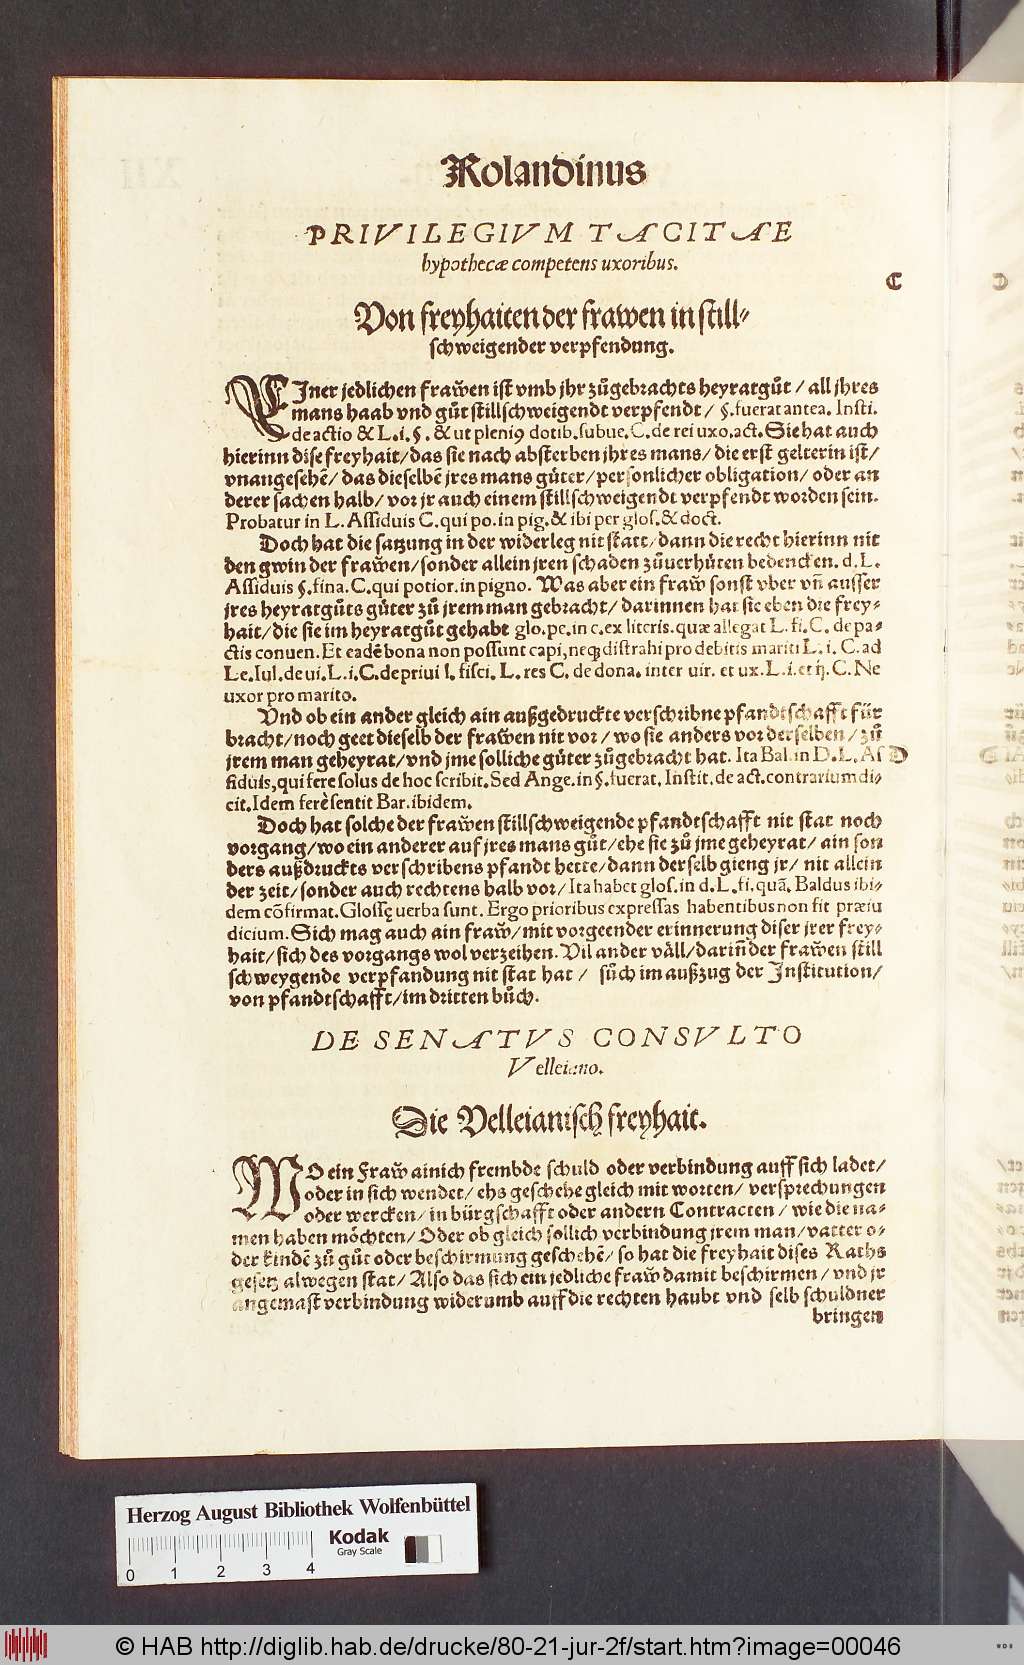 Rolandinus
PRIVILEGIVM TACITAE
hypothecæ competens uxoribus.
C
Von freyhaiten der frawen in still⸗
schweigender verpfendung.
EJner jedlichen frawẽn ist vmb jhr zůgebrachts heyratgůt / all jhres
mans haab vnd gůt stillschweigendt verpfendt / §. fuerat antea. Insti.
de actio & L. i. §. & ut pleniꝰ dotib. subue. C. de rei uxo. act. Sie hat auch
hierinn dise freyhait / das sie nach absterben jhres mans / die erst gelterin ist /
vnangesehẽ / das dieselbẽ jres mans gůter / personlicher obligation / oder an
derer sachen halb / vor jr auch einem stillschweigendt verpfendt worden sein.
Probatur in L. Assiduis C. qui po. in pig. & ibi per glos. & doct.
Doch hat die satzung in der widerleg nit statt / dann die recht hierinn nit
den gwin der frawẽn / sonder allein jren schaden zůuerhůten bedencken. d. L.
Assiduis §. fina. C. qui potior. in pigno. Was aber ein fraw̃ sonst vber vñ ausser
jres heyratgůts gůter zů jrem man gebracht / darinnen hat sie eben die frey⸗
hait / die sie im heyratgůt gehabt glo. pe. in c. ex literis. quæ allegat L. fi. C. de pa⸗
ctis conuen. Et eadẽ bona non possunt capi, neqꝫ distrahi pro debitis mariti L. i. C. ad
Le. Iul. de ui. L. i. C. de priui l. fisci. L. res C. de dona. inter uir. et ux. L. i. et ij. C. Ne
uxor pro marito.
Vnd ob ein ander gleich ain außgedruckte verschribne pfandtschafft für
bracht / noch geet dieselb der frawẽn nit vor / wo sie anders vor derselben / zů
jrem man geheyrat / vnd jme solliche gůter zůgebracht hat. Ita Bal. in D. L. As D
siduis, qui fere solus de hoc scribit. Sed Ange. in §. fuerat. Instit. de act. contrarium di⸗
cit. Idem ferè sentit Bar. ibidem.
Doch hat solche der frawẽn stillschweigende pfandtschafft nit stat noch
vorgang / wo ein anderer auf jres mans gůt / ehe sie zů jme geheyrat / ain son
ders außdruckts verschribens pfandt hette / dann derselb gieng jr / nit allein
der zeit / sonder auch rechtens halb vor / Ita habet glos. in d. L. fi. quã. Baldus ibi⸗
dem cõfirmat. Glossę uerba sunt. Ergo prioribus expressas habentibus non fit præiu
dicium. Sich mag auch ain fraw̃ / mit vorgeender erinnerung diser jrer frey⸗
hait / sich des vorgangs wol verzeihen. Vil ander väll / dariñ der frawẽn still
schweygende verpfandung nit stat hat / sůch im außzug der Institution /
von pfandtschafft / im dritten bůch.
DE SENATVS CONSVLTO
Velleiano.
Die Velleianisch freyhait.
WO ein Fraw̃ ainich frembde schuld oder verbindung auff sich ladet /
oder in sich wendet / ehs geschehe gleich mit worten / versprechungen
oder wercken / in bürgschafft oder andern Contracten / wie die na⸗
men haben möchten / Oder ob gleich sollich verbindung jrem man / vatter o⸗
der kindẽ zů gůt oder beschirmung geschehẽ / so hat die freyhait dises Raths
gesetz alwegen stat / Also das sich ein jedliche fraw̃ damit beschirmen / vnd jr
angemast verbindung widerumb auff die rechten haubt vnd selb schuldner
bringen
Herzog August Bibliothek Wolfenbüttel
Kodak
Gray Scale
0 1 2 3 4
© HAB http://diglib.hab.de/drucke/80-21-jur-2f/start.htm?image=00046